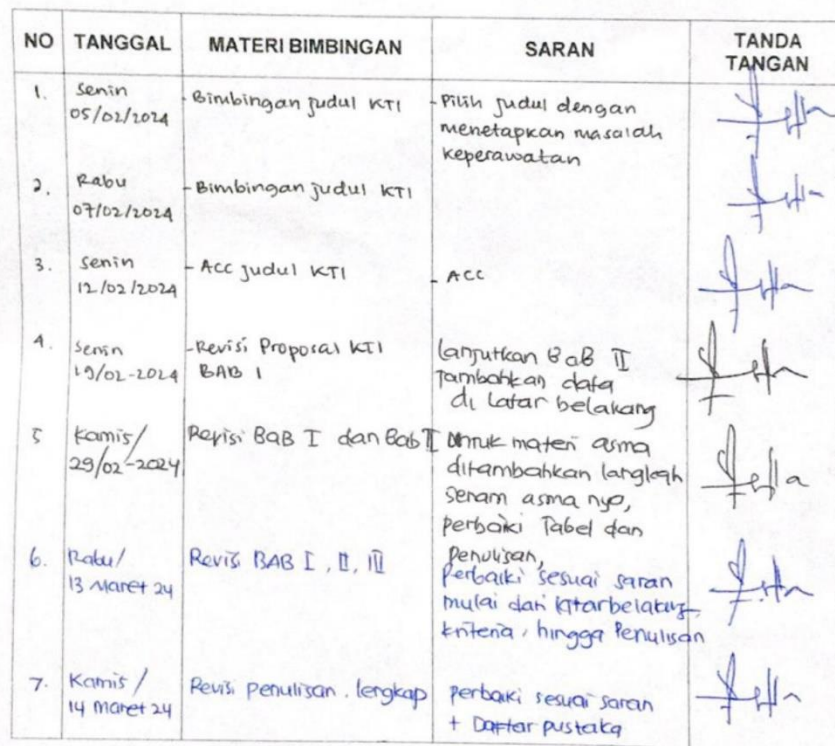 NO TANGGAL MATERI BIMBINGAN SARAN TANDA TANGAN
1. Senin
05/02/2024
- Bimbingan judul KTI
- Pilih judul dengan
menetapkan masalah
keperawatan
2. Rabu
07/02/2024
- Bimbingan judul KTI
3. Senin
12/02/2024
- Acc judul KTI
- ACC
4. Senin
19/02-2024
- Revisi Proposal KTI
BAB 1
lanjutkan BaB II
Tambahkan data
di Latar belakang
5 Kamis/
29/02-2024
Revisi BAB I dan Bab II
Untuk materi asma
ditambahkan langkah
Senam asma nya,
perbaiki Tabel dan
Penulisan,
6. Rabu/
13 Maret 24
Revisi BAB I, II, III
Perbaiki sesuai saran
mulai dari latarbelakang,
kriteria, hingga Penulisan
7. Kamis/
14 maret 24
Revisi penulisan. lengkap
perbaiki sesuai saran
+ Daftar pustaka